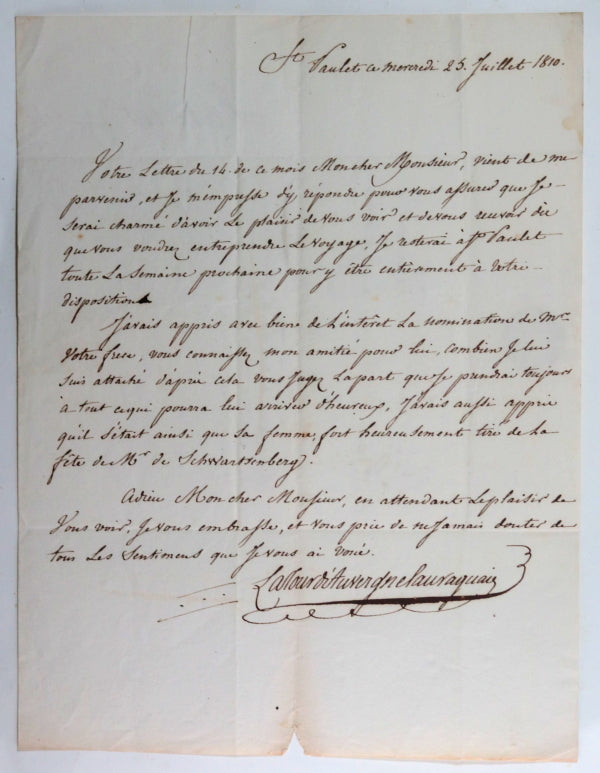 St Paulet ce mercredi 25. Juillet 1810.
Votre Lettre du 14. de ce mois Moncher Monsieur, vient de me
parvenir, et Je m'empresse d'y répondre pour vous assurer que Je
serai charmé d'avoir Le plaisir de vous voir et de vous recevoir dès
que vous voudrez entreprendre Le voyage, Je resterai à St Paulet
toute La Semaine prochaine pour y être entièrement à votre
disposition
J'avais appris avec bien de L'intérêt La nomination de Mr
Votre frere, vous connaissez mon amitié pour lui, combien Je lui
suis attaché d'après cela vous Jugez Lapart que Je prendrai toujours
à tout cequi pourra lui arriver d'heureux, J'avais aussi appris
qu'il s'était ainsi que sa femme, fort heureusement tiré de La
fête de Mr de Schwartsenberg.
Adieu Moncher Monsieur, en attendant Leplaisir de
Vous voir, Je vous embrasse, et vous prie de ne Jamais douter de
tous Les Sentimens que Je vous ai voué.
LaTourd'Auvergnelauraguais